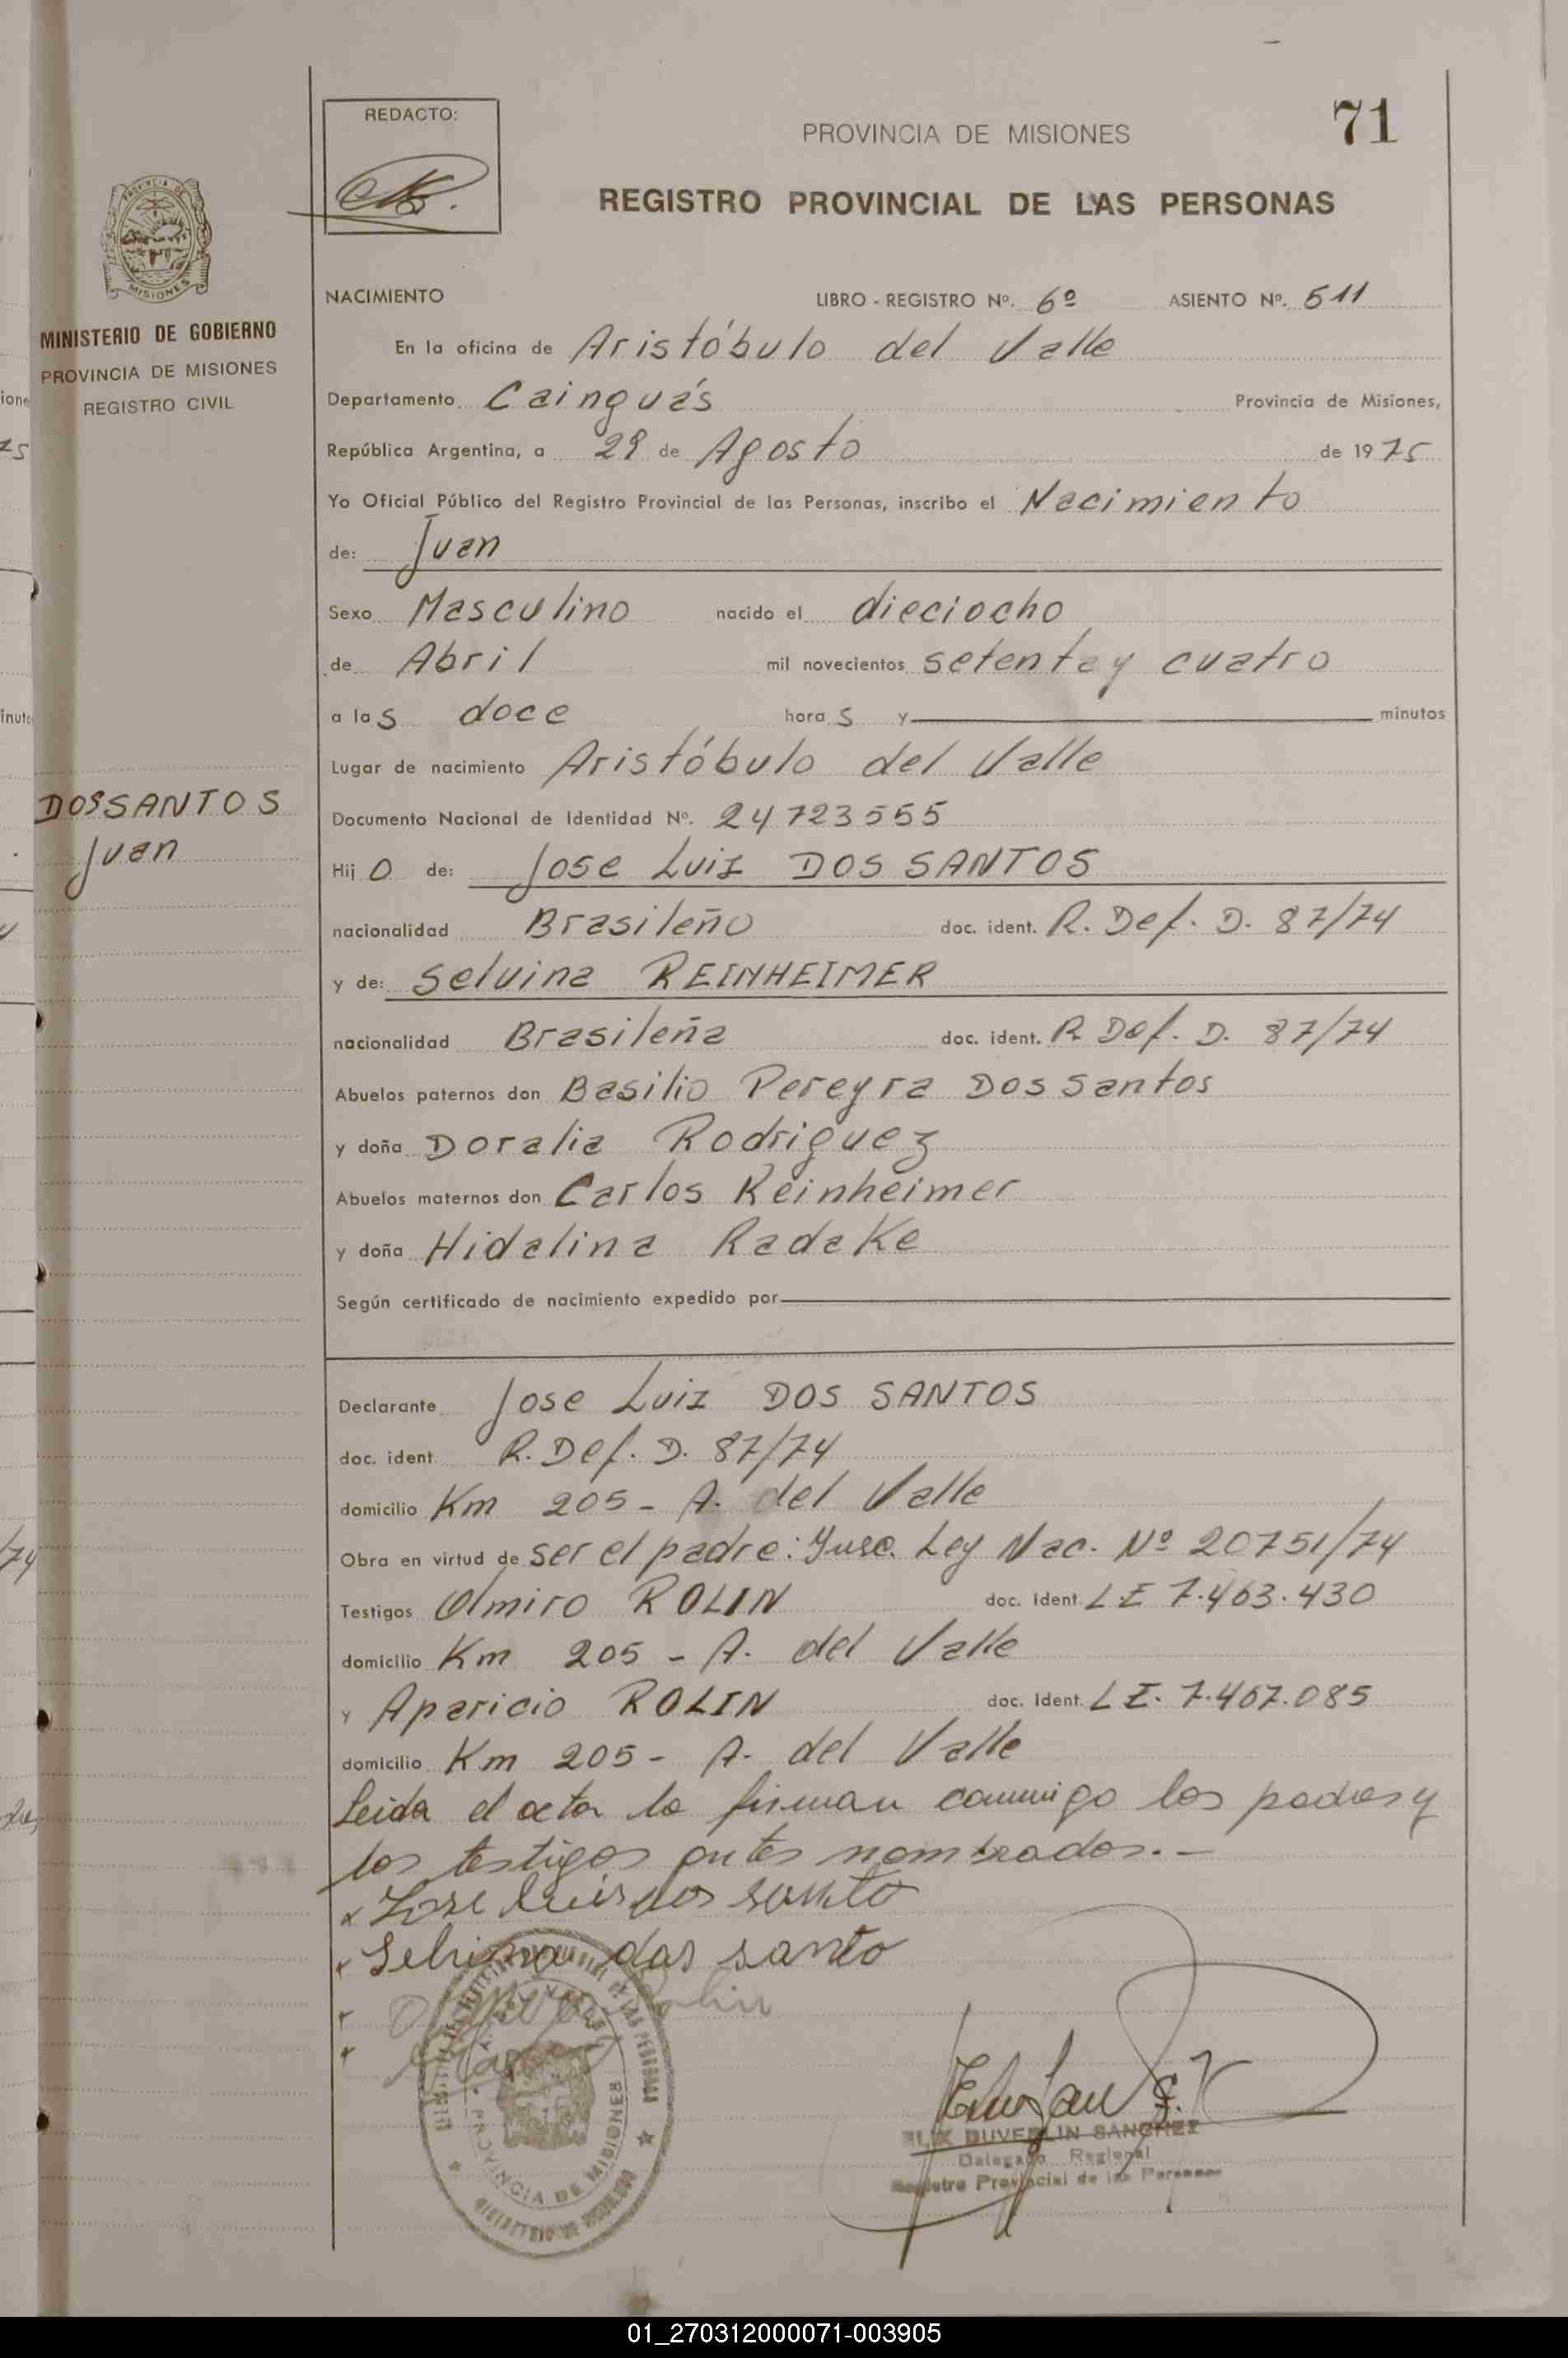 71
REDACTO:
PROVINCIA DE MISIONES
REGISTRO PROVINCIAL DE LAS PERSONAS
MINISTERIO DE GOBIERNO
PROVINCIA DE MISIONES
REGISTRO CIVIL
NACIMIENTO LIBRO - REGISTRO Nº. 6º ASIENTO Nº. 511
En la oficina de Aristóbulo del Valle
Departamento Cainguás Provincia de Misiones,
República Argentina, a 29 de Agosto de 1975
Yo Oficial Público del Registro Provincial de las Personas, inscribo el Nacimiento
de: Juan
Sexo Masculino nacido el dieciocho
de Abril mil novecientos setenta y cuatro
a las doce horas y minutos
Lugar de nacimiento Aristóbulo del Valle
DOS SANTOS
Juan
Documento Nacional de Identidad Nº. 24723555
Hijo de: Jose Luiz DOS SANTOS
nacionalidad Brasileño doc. ident. R. Def. D. 87/74
y de: Selvina REINHEIMER
nacionalidad Brasileña doc. ident. R. Def. D. 87/74
Abuelos paternos don Basilio Pereyra Dos Santos
y doña Doralia Rodriguez
Abuelos maternos don Carlos Reinheimer
y doña Hidalina Radake
Según certificado de nacimiento expedido por
Declarante Jose Luiz DOS SANTOS
doc. ident. R. Def. D. 87/74
domicilio Km 205 - A. del Valle
Obra en virtud de ser el padre: Insc. Ley Nac. Nº 20751/74
Testigos Olmiro ROLIN doc. Ident. L.E 7.463.430
domicilio Km 205 - A. del Valle
y Aparicio ROLIN doc. Ident. L.E. 7.467.085
domicilio Km 205 - A. del Valle
Leida el acta la firman conmigo los padres y
los testigos antes nombrados.-
x Jose luis dos santo
x Selvina dos santo
x Rolin
x
PROVINCIA DE MISIONES
MINISTERIO DE GOBIERNO
SANCHEZ
Delegado Regional
Registro Provincial de las Personas
01_270312000071-003905